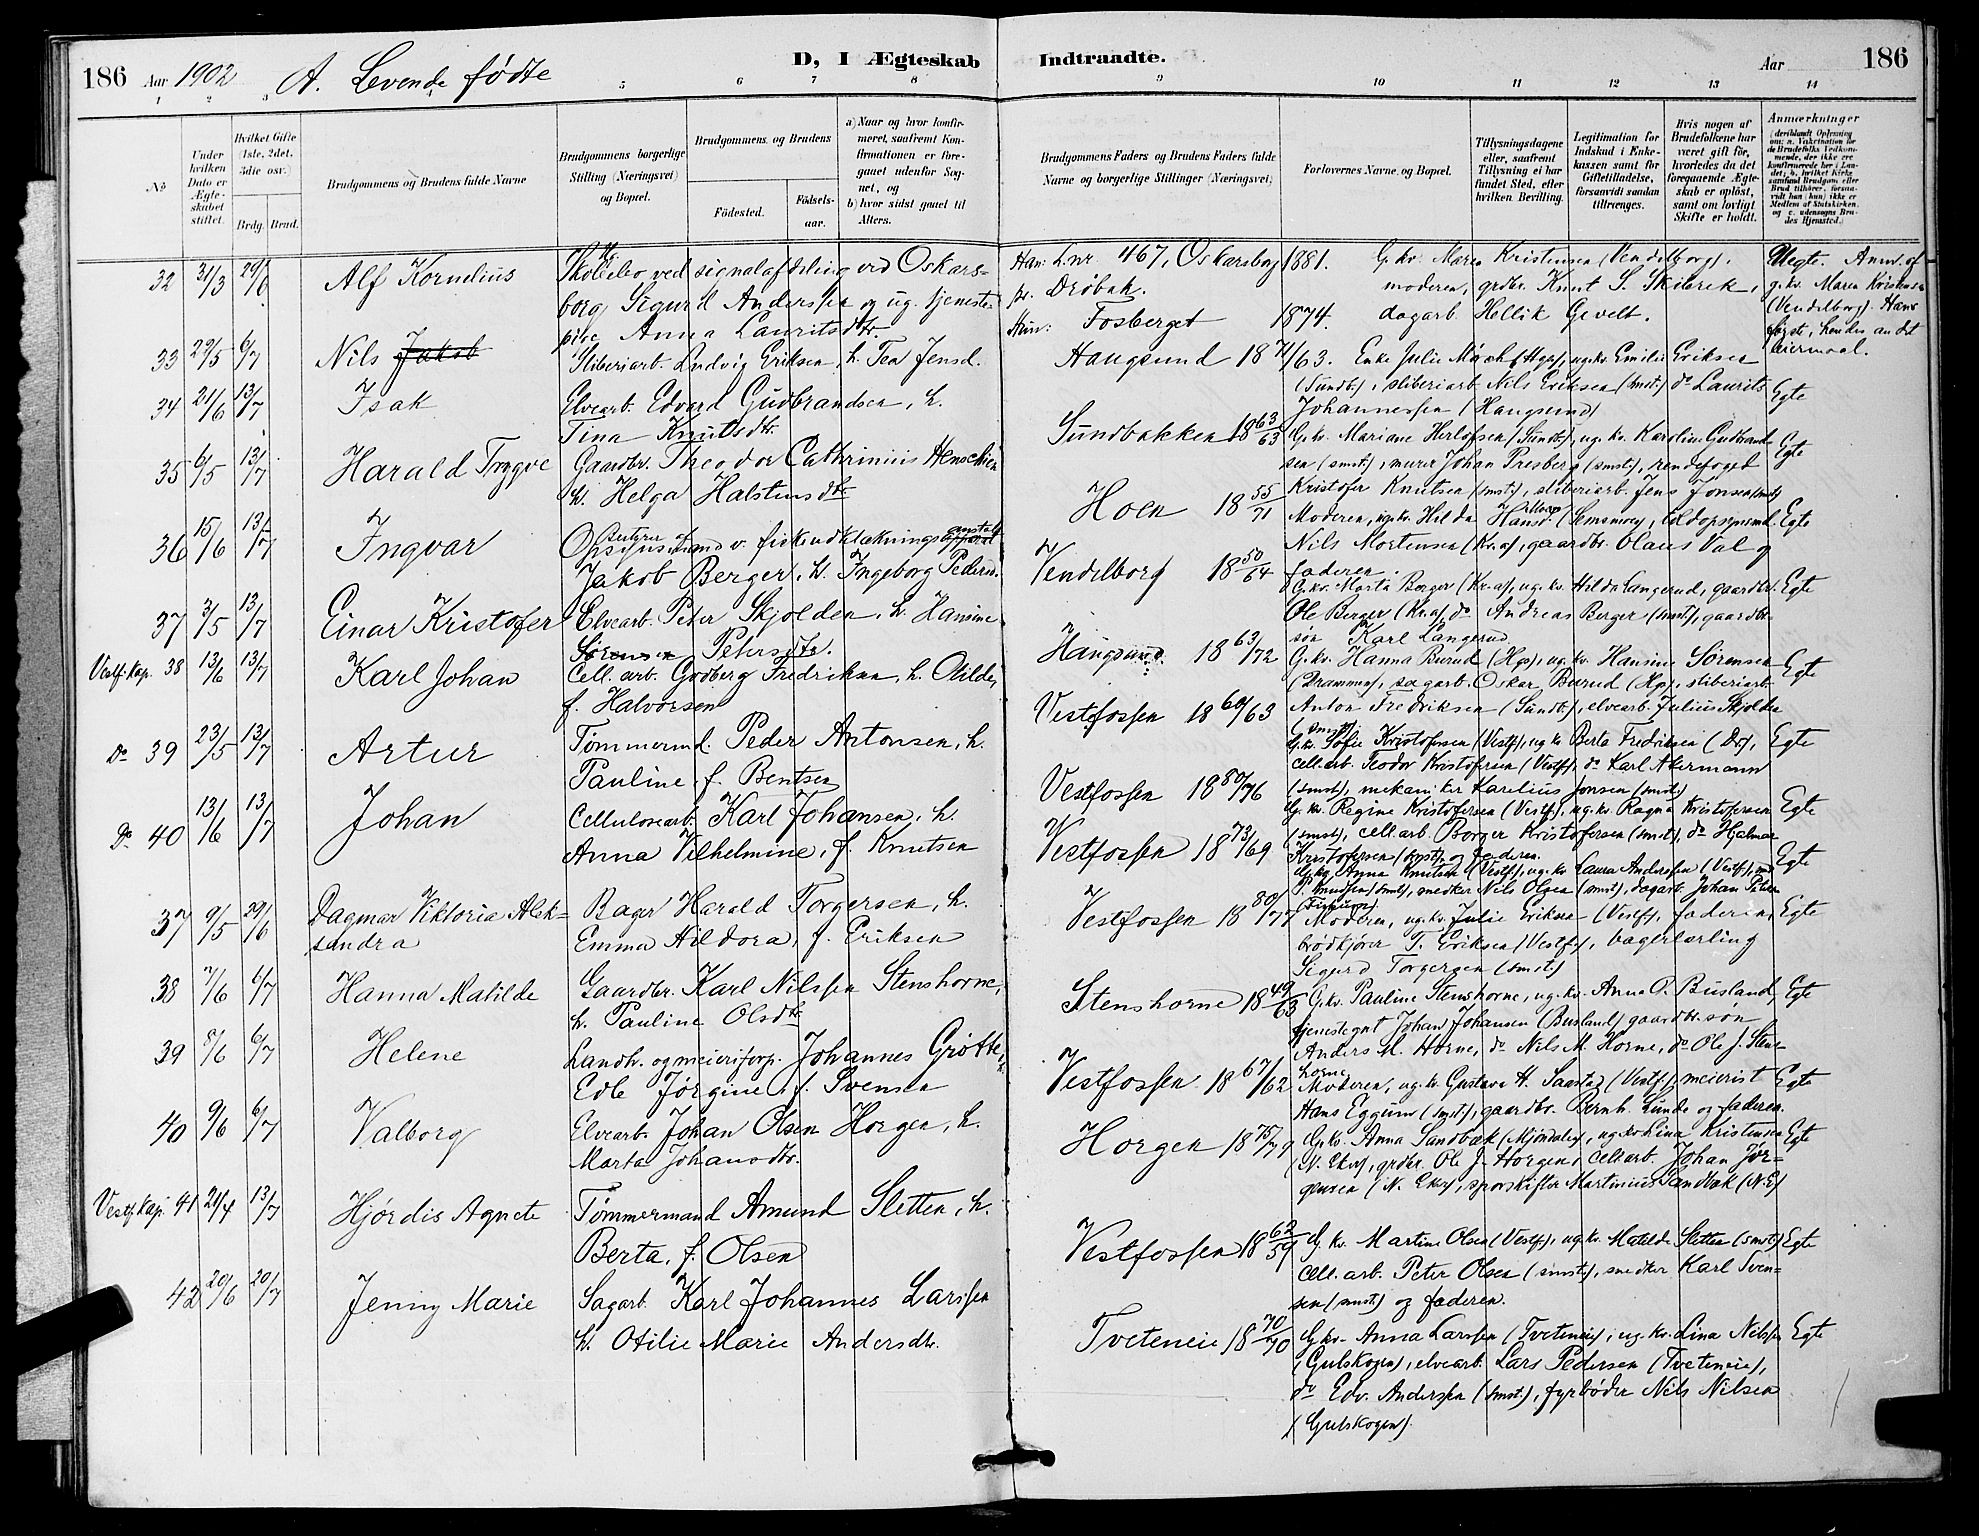 186 Aar 1902 A. Levende fødte D, I Ægteskab Indtraadte. Aar 186
1 2 3 4 5 6 7 8 9 10 11 12 13 14
No
Under hvilken Dato er Ægteskabet stiftet.
Hvilket Gifte (1ste, 2det, 3die osv.)
Brdg. Brud.
Brudgommens og Brudens fulde Navne
Brudgommens borgerlige Stilling (Næringsvei) og Bopæl.
Brudgommens og Brudens
Fødested.
Fødselsaar.
a) Naar og hvor konfirmeret, saafremt Konfirmationen er foregaaet udenfor Sognet, og
b) hvor sidst gaaet til Alters.
Brudgommens Faders og Brudens Faders fulde Navne og borgerlige Stillinger (Næringsvei)
Forlovernes Navne og Bopæl.
Tillysningsdagene eller, saafremt Tillysning ei har fundet Sted, efter hvilken Bevilling.
Legitimation for Indskud i Enkekassen samt for Giftetilladelse, forsaavidt saadan tiltrænges.
Hvis nogen af Brudefolkene har været gift før, hvorledes da det foregaaende Ægteskab er opløst, samt om lovligt Skifte er holdt.
Anmærkninger
32 31/3 29/6 Alf Kornelius
Skolelev ved signalafdeling ved Oskars-
borg Sigurd Anderssen og ug. tjeneste-
pige Anna Lauritsdtr.
Han: Lnr. 467, Oskarsborg 1881.
pr. Drøbak.
Hun: Fosberget 1874.
G. kv. Maren Kristensen (Vendelborg),
moderen, grdbr. Knut S. Skibrek,
dagarb. Hellik Gevelt.
Uegte. Anm. af
g. kv. Maren Kristensen
(Vendelborg). Hans
først, hendes andet
leiermaal.
33 29/5 6/7 Nils Jakob
Sliberiarb. Ludvig Eriksen, h. Tea Jensd.
Haugsund 18 71/63. Enke Julie Mørch (Hgs), ug. kv. Emilie Eriksen
(Sundb), sliberiarb. Nils Eriksen (smst.) do Laurits
Johannessen (Haugsund)
Egte
34 21/6 13/7 Isak
Elvearb. Edvard Gudbrandsen, h.
Tina Knutsdtr.
Sundbakken 18 63/63 G. kv. Mariane Herlofsen (Sundb), ug. kv. Karoline Gudbrand-
sen (smst.), murer Johan Presberg (smst.), rendefoged
Kristofer Knutsen (smst), sliberiarb. Jens Jonsen (smst)
Egte
35 6/5 13/7 Harald Trygve
Gaardbr. Theodor Cathrinius Henschien
h. Helga Halstensdtr
Hoen 18 55/71 Moderen, ug. kv. Hilda (Semsmoen), toldopsynsmd.
Nils Mortensen (Kr.a), gaardbr. Olaus Val og
faderen.
Egte
36 15/6 13/7 Ingvar
Bestyrer af
Opsynsmand v. fiskeudklækningsapparat anstalt
Jakob Berger, h. Ingeborg Pedersd.
Vendelborg 18 50/64
G. kv. Marta Berger (Kr.a), ug. kv. Hilda Langerud, gaardbr.
Ole Berger (Kr.a), do Andreas Berger (smst), gaardbr.-
søn Karl Langerud
Egte
37 3/5 13/7 Einar Kristofer
Elvearb. Peter Skjolden, h. Hansine
Sørensen Petersdtr.
Haugsund 18 63/72 G. kv. Hanna Burud (Hgs), ug. kv. Hansine Sørensen
(Drammen), sagarb. Oskar Burud (Hgs), sliberiarb.
Anton Fredriksen (Sundb), elvearb. Julius Skjolden
(smst)
Egte
Vestf. kap. 38 13/6 13/7 Karl Johan
Cell. arb. Godberg Fredriksen, h. Otilde,
f. Halvorsen
Vestfossen 18 60/63
G. kv. Sofie Kristofersen (Vestf), ug. kv. Berta Fredriksen (Dr),
cell. arb. Teodor Kristofersen (Vestf), do Karl Akermann
(smst), mekaniker Karelius Jonsen (smst)
Egte
Do 39 23/5 13/7 Artur
Tømmermd. Peder Antonsen, h.
Pauline, f. Bentsen
Vestfossen 18 80/76
G. kv. Regine Kristofersen (Vestf), ug. kv. Ragna Kristofersen
(smst), cell. arb. Borger Kristofersen (smst), do Hjalmar
Kristofersen (smst) og faderen.
Egte
Do 40 13/6 13/7 Johan
Cellulosearb. Karl Johansen, h.
Anna Vilhelmine, f. Knutsen
Vestfossen 18 73/69
G. kv. Anna Knutsen (Vestf), ug. kv. Laura Anderssen (Vestf),
Knudsen (smst), snedker Nils Olsen (smst), dagarb. Johan Peter
Egte
37 9/5 29/6 Dagmar Viktoria Alek-
sandra
Bager Harald Torgersen, h.
Emma Hildora, f. Eriksen
Vestfossen 18 80/77 Moderen, ug. kv. Julie Eriksen (Vestf), faderen,
brødkjører T. Eriksen (Vestf), bagerlærling
Sigurd Torgersen (smst)
Egte
38 7/6 6/7 Hanna Matilde
Gaardbr. Karl Nilssen Stenshorne,
h. Pauline Olsdtr
Stenshorne 18 49/63 G. kv. Pauline Stenshorne, ug. kv. Anna O. Busland,
tjenestegut Johan Johansen (Busland), gaardbr. søn
Anders M. Horne, do Nils M. Horne, do Ole J. Stens-
horne
Egte
39 8/6 6/7 Helene
Landh. og meieriforp. Johannes Grøtte, h.
Edle Jørgine, f. Svensen
Vestfossen 18 67/62 Moderen, ug. kv. Gustava H. Saasta (Vestf), meierist
Hans Eggum (smst), gaardbr. Bernh. Lunde og faderen.
Egte
40 9/6 6/7 Valborg
Elvearb. Johan Olsen Horgen, h.
Marta Johansdtr.
Horgen 18 75/79 G. kv. Anna Sandbæk (Mjøndalen), ug. kv. Lina Kristensen
(N. Eker), grdbr. Ole J. Horgen, cell. arb. Johan Jør-
gensen (N. Eker), sporskifter Martinius Sandbæk (N.E)
Egte
Vestf. kap. 41 21/4 13/7 Hjørdis Agnete
Tømmermand Amund Sletten, h.
Berta, f. Olsen
Vestfossen 18 62/59 G. kv. Martine Olsen (Vestf), ug. kv. Matilde Sletten (smst)
cell. arb. Peter Olsen (smst), snedker Karl Sven-
sen (smst) og faderen.
Egte
42 20/6 20/7 Jenny Marie
Sagarb. Karl Johannes Larssen
h. Otilie Marie Andersdtr.
Tveteneie 18 70/70 G. kv. Anna Larssen (Tveteneie), ug. kv. Lina Nilssen
(Gulskogen), elvearb. Lars Pedersen (Tveteneie),
do Edv. Anderssen (smst.), fyrbøder Nils Nilsen
(Gulskogen).
Egte